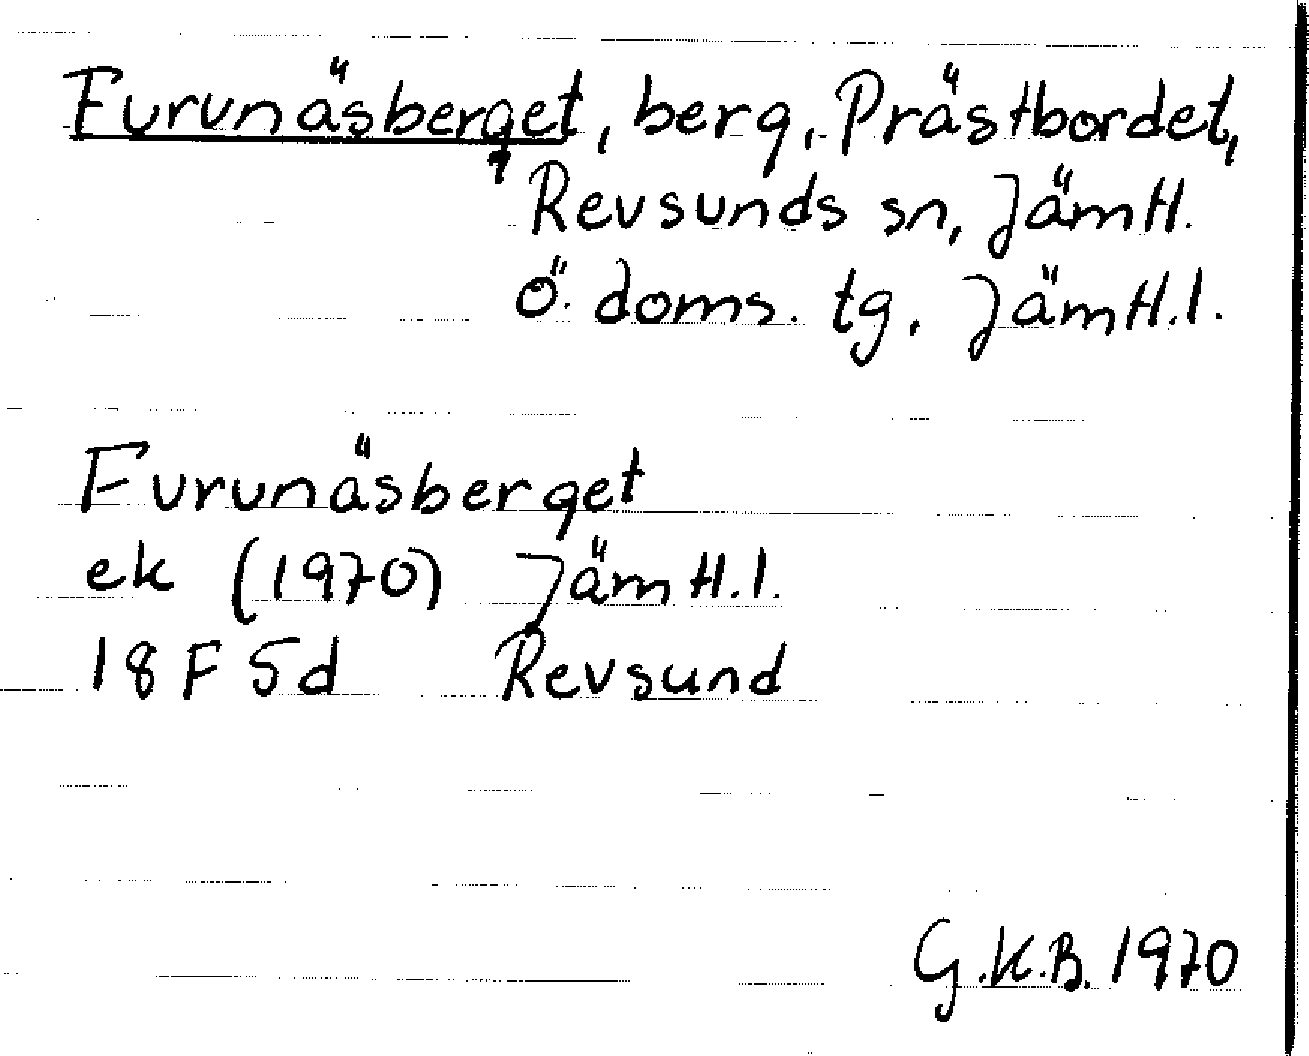 Furunäsberget, berg, Prästbordet,
Revsunds sn, Jämtl.
Ö. doms. tg. Jämtl. l.
Furunäsberget
ek (1970) Jämtl. l.
18 F 5d Revsund
G.K.B. 1970